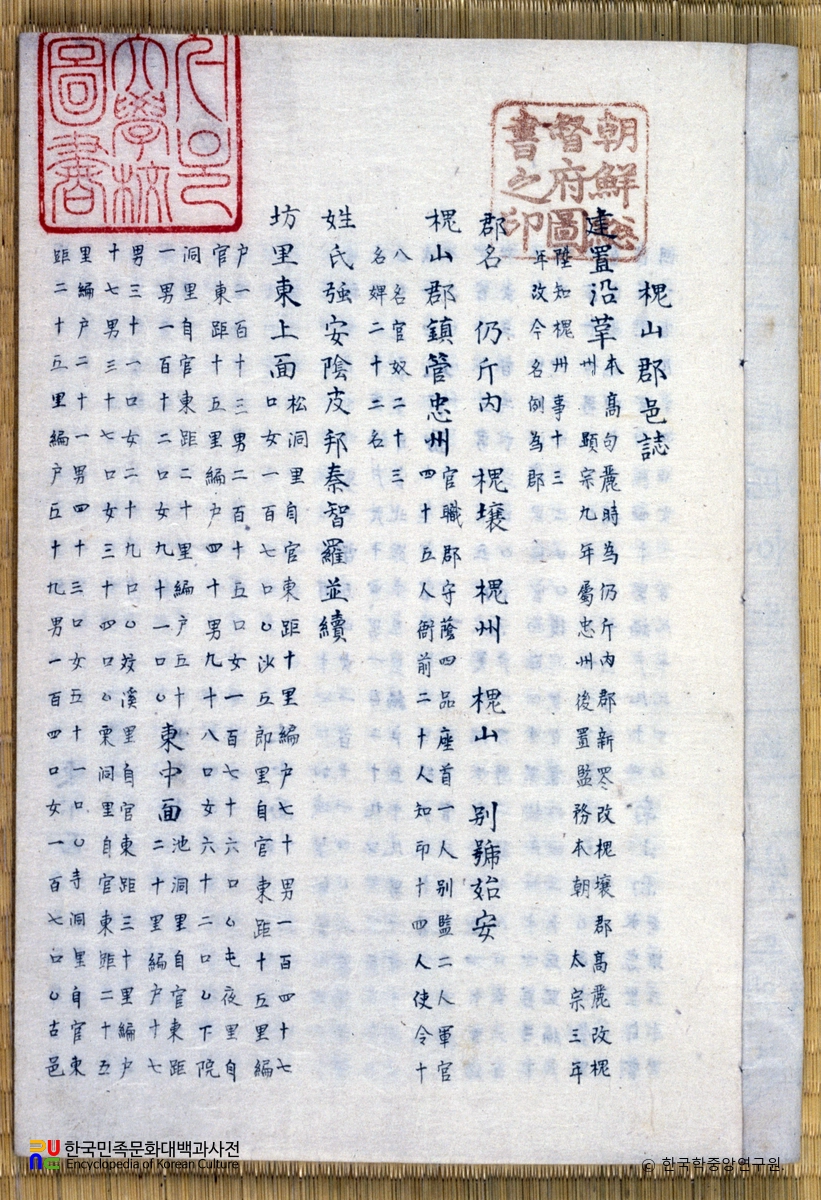 朝鮮總
督府圖
書之印
大學校
圖書
槐山郡邑誌
建置沿革 本高句麗時為仍斤內郡新罗改槐壤郡高麗改槐
州顯宗九年屬忠州後置監務本朝 太宗三年
陞知槐州事十三
年改今名例為郡
郡名 仍斤內 槐壤 槐州 槐山 別號始安
槐山郡鎮管忠州 官職郡守蔭四品座首一人別監二人軍官
四十五人衙前二十人知印十四人使令十
八名官奴二十三
名婢二十二名
姓氏強安陰皮邦秦智羅並續
坊里東上面 松洞里自官東距十里編户七十男一百四十七
口女一百七口○沙五郎里自官東距十五里編
户一百十三男二百十五口女一百七十六口○屯夜里自
官東距十五里編户四十男九十八口女六十二口○下院
洞里自官東距二十里編户五十
一男一百十二口女九十一口○
東中面 池洞里自官東距
二十里編户十七
男三十一口女二十九口○妏溪里自官東距三十里編户
十七男三十七口女三十四口○栗洞里自官東距二十五
里編户二十一男四十三口女五十一口○寺洞里自官東
距二十五里編户五十九男一百四口女一百七口○古邑
한국민족문화대백과사전
Encyclopedia of Korean Culture
© 한국학중앙연구원